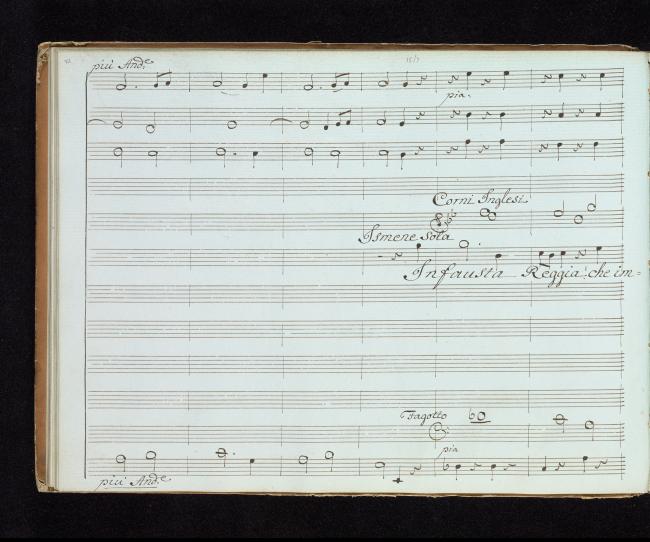 più And.e
pia.
Corni Inglesi
Ismene sola
Infausta Reggia: che im=
Fagotto
pia
più And.e